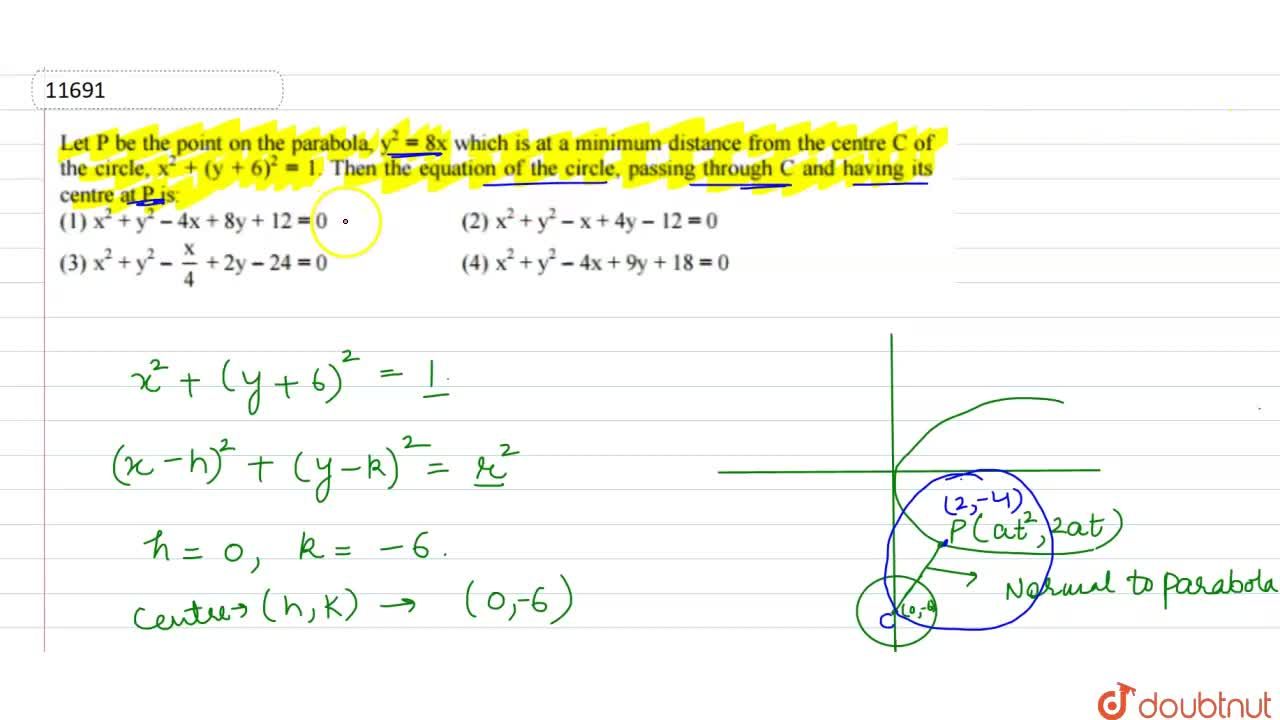 11691
Let P be the point on the parabola, y² = 8x which is at a minimum distance from the centre C of
the circle, x² + (y + 6)² = 1. Then the equation of the circle, passing through C and having its
centre at P is:
(1) x² + y² − 4x + 8y + 12 = 0 (2) x² + y² − x + 4y − 12 = 0
(3) x² + y² − x/4 + 2y − 24 = 0 (4) x² + y² − 4x + 9y + 18 = 0
x² + (y + 6)² = 1.
(x − h)² + (y − k)² = r²
h = 0, k = −6.
centre → (h, k) → (0, −6)
(2, −4)
P(at², 2at)
Normal to parabola
C (0, −6)
doubtnut